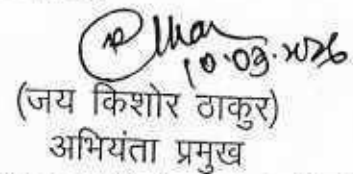 10.03.2026
(जय किशोर ठाकुर)
अभियंता प्रमुख